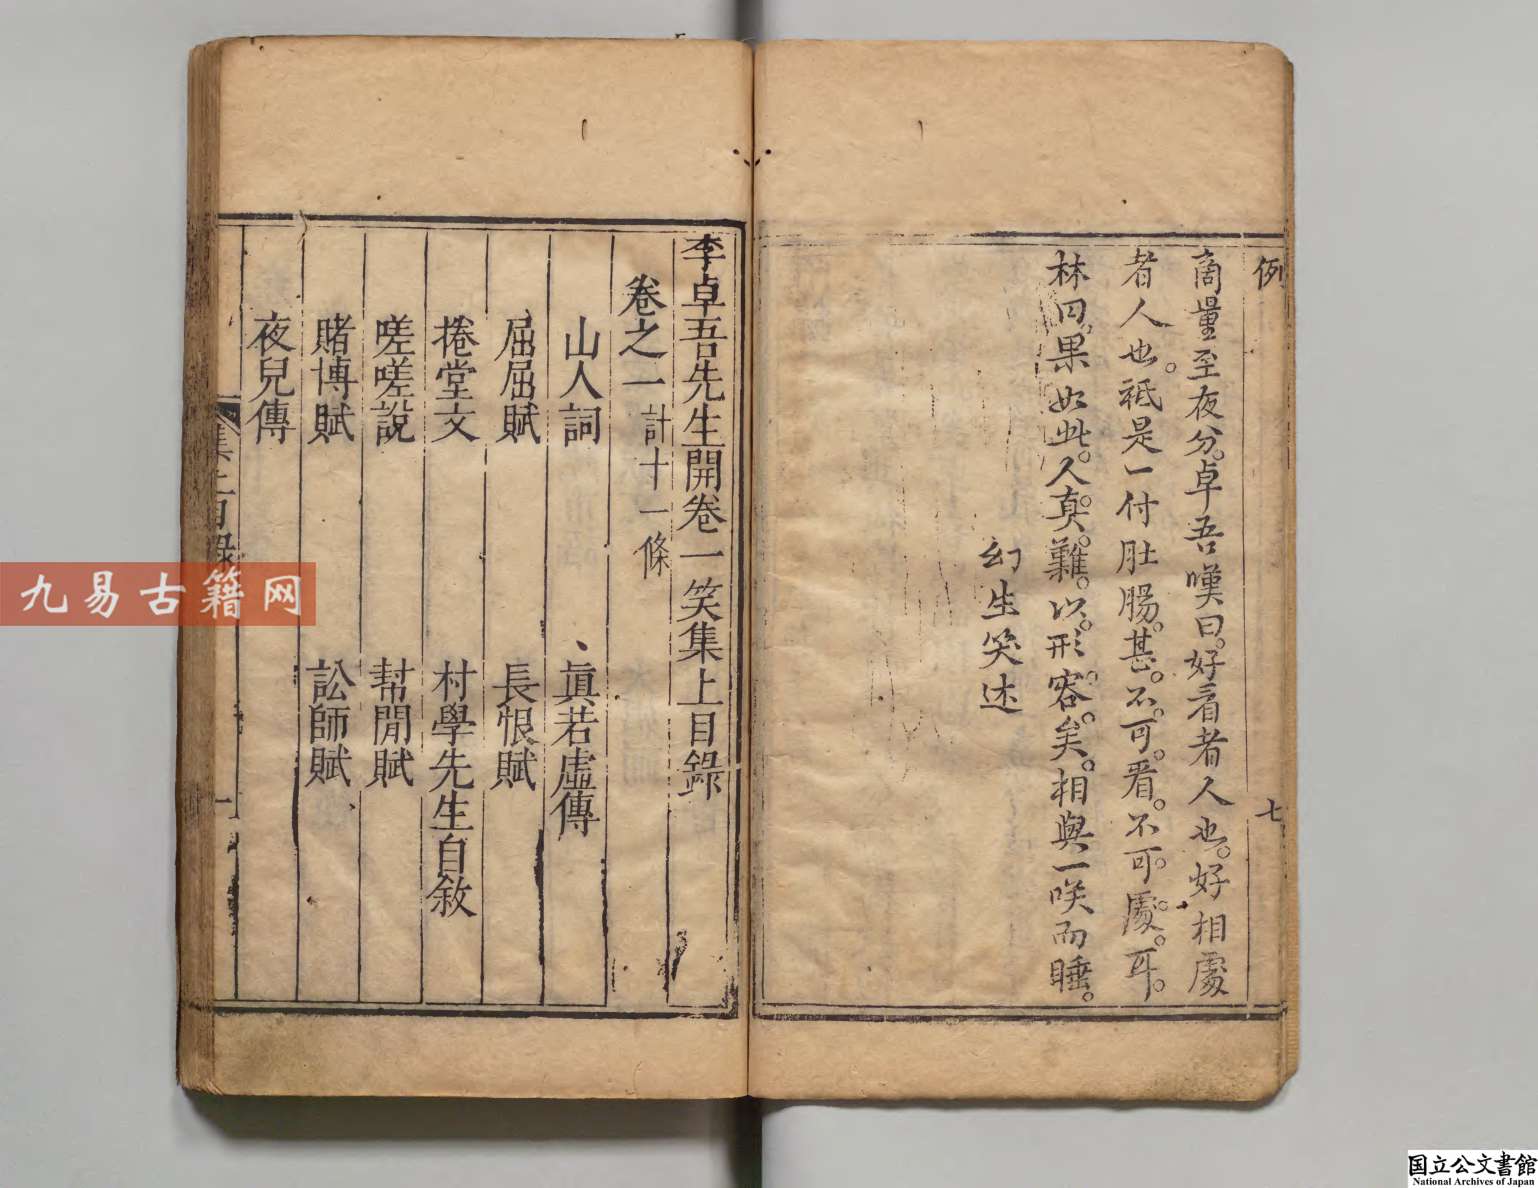 例
七
商量至夜分。卓吾嘆曰。好看者人也。好相處
者人也。祗是一付肚腸。甚。不。可。看。不。可。處。耳。
林曰。果如此。人。真。難。以。形。容。矣。相與一咲而睡。
幻生笑述
李卓吾先生開卷一笑集上目錄
卷之一 計十一條
山人詞 眞若虛傳
屈屈賦 長恨賦
捲堂文 村學先生自敘
嗟嗟說 幇閒賦
賭博賦 訟師賦
夜兒傳
集上目錄
一
九易古籍网
国立公文書館
National Archives of Japan